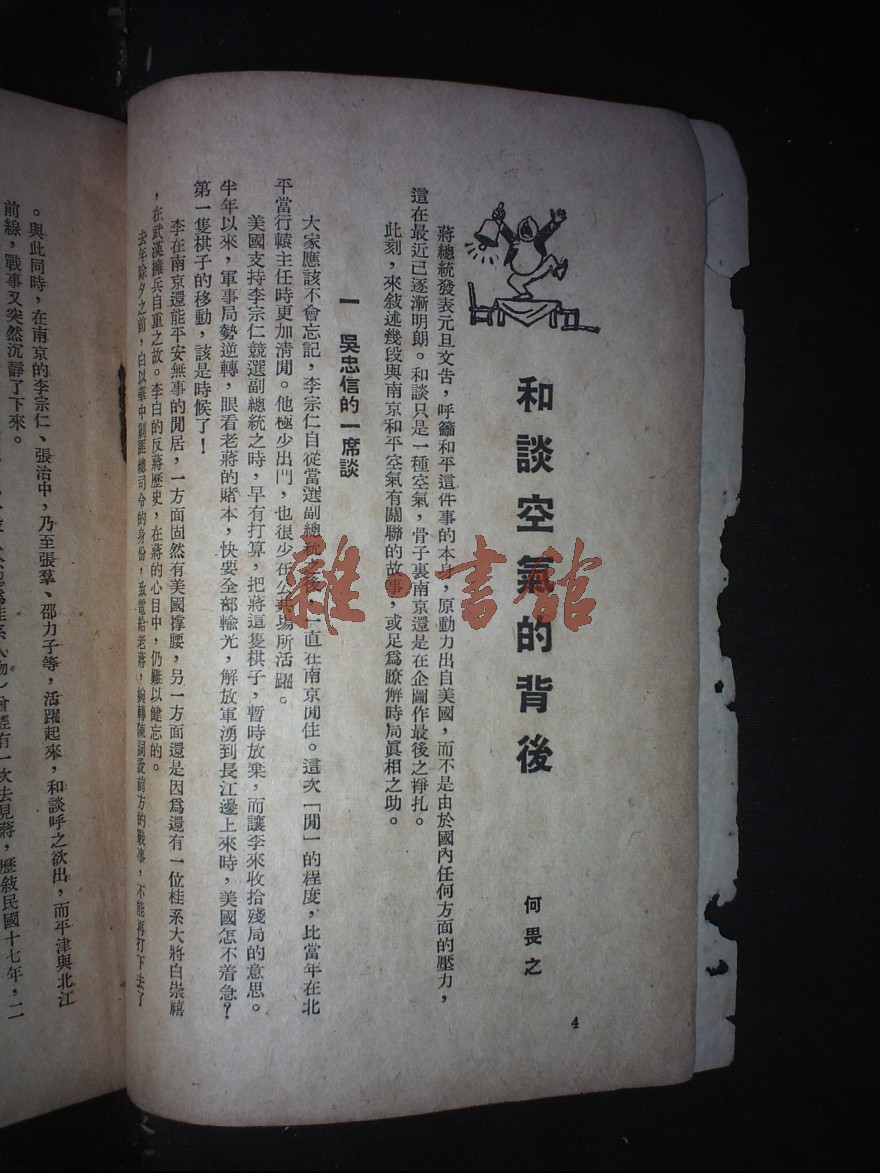 和談空氣的背後
何畏之
蔣總統發表元旦文告，呼籲和平這件事的本身，原動力出自美國，而不是由於國內任何方面的壓力，
這在最近已逐漸明朗。和談只是一種空氣，骨子裏南京還是在企圖作最後之掙扎。
此刻，來敍述幾段與南京和平空氣有關聯的故事，或足爲瞭解時局眞相之助。
一 吳忠信的一席談
大家應該不會忘記，李宗仁自從當選副總統之後，一直在南京閒住。這次「閒」的程度，比當年在北
平當行轅主任時更加淸閒。他極少出門，也很少在公共場所活躍。
美國支持李宗仁競選副總統之時，早有打算，把蔣這隻棋子，暫時放棄，而讓李來收拾殘局的意思。
半年以來，軍事局勢逆轉，眼看老蔣的賭本，快要全部輸光，解放軍湧到長江邊上來時，美國怎不着急？
第一隻棋子的移動，該是時候了！
李在南京還能平安無事的閒居，一方面固然有美國撐腰，另一方面還是因爲還有一位桂系大將白崇禧
，在武漢擁兵自重之故。李白的反蔣歷史，在蔣的心目中，仍難以健忘的。
去年除夕之前，白以華中剿匪總司令的身份，致電給老蔣，婉轉陳詞說前方的戰事，不能再打下去了
4
。與此同時，在南京的李宗仁、張治中，乃至張羣、邵力子等，活躍起來，和談呼之欲出，而平津與北江
前線，戰事又突然沉靜了下來。
桂系人物）曾經有一次去見蔣，歷敍民國十七年，二
雜·書館